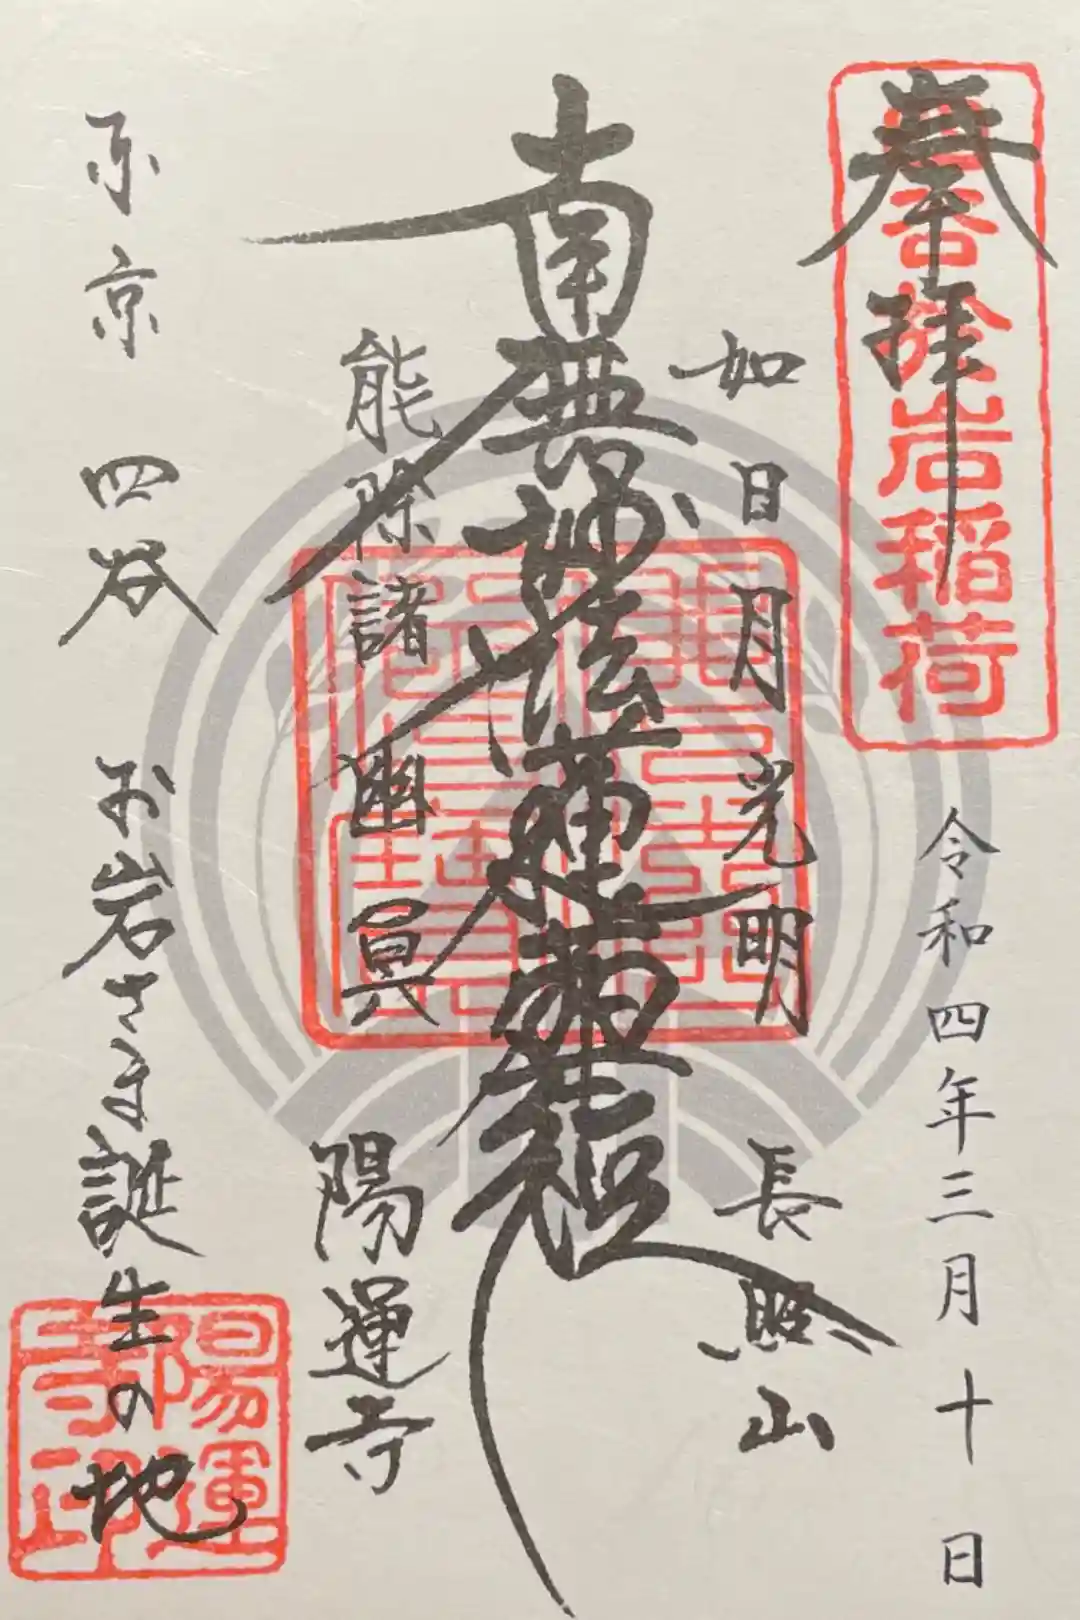 奉拝
四谷於岩稲荷
令和四年三月十日
如日月光明 長照山
南無妙法蓮華経
能除諸幽冥 陽運寺
東京 四谷 お岩さま誕生の地
陽運寺印